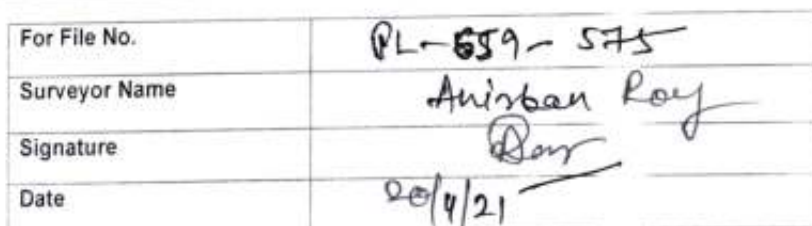 For File No. PL-659-575
Surveyor Name Anirban Roy
Signature
Date 20/4/21